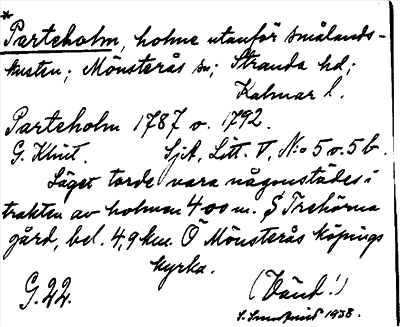 *
Parteholm, holme utanför smålands-
kusten; Mönsterås sn; Stranda hd;
Kalmar l.
Parteholm 1787 o. 1792.
G. Klint. SjA, Litt. V, N:o 5 o. 5b.
Läget torde vara någonstädes i
trakten av holmen 400 m. S Trehörna
gård, bel. 4,9 km. Ö Mönsterås köpings
kyrka.
G. 22. (Vänd!)
1938.